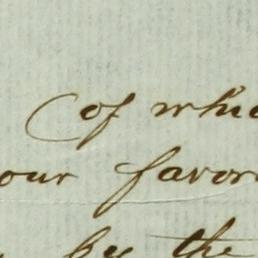 (of whic
our favor
by the